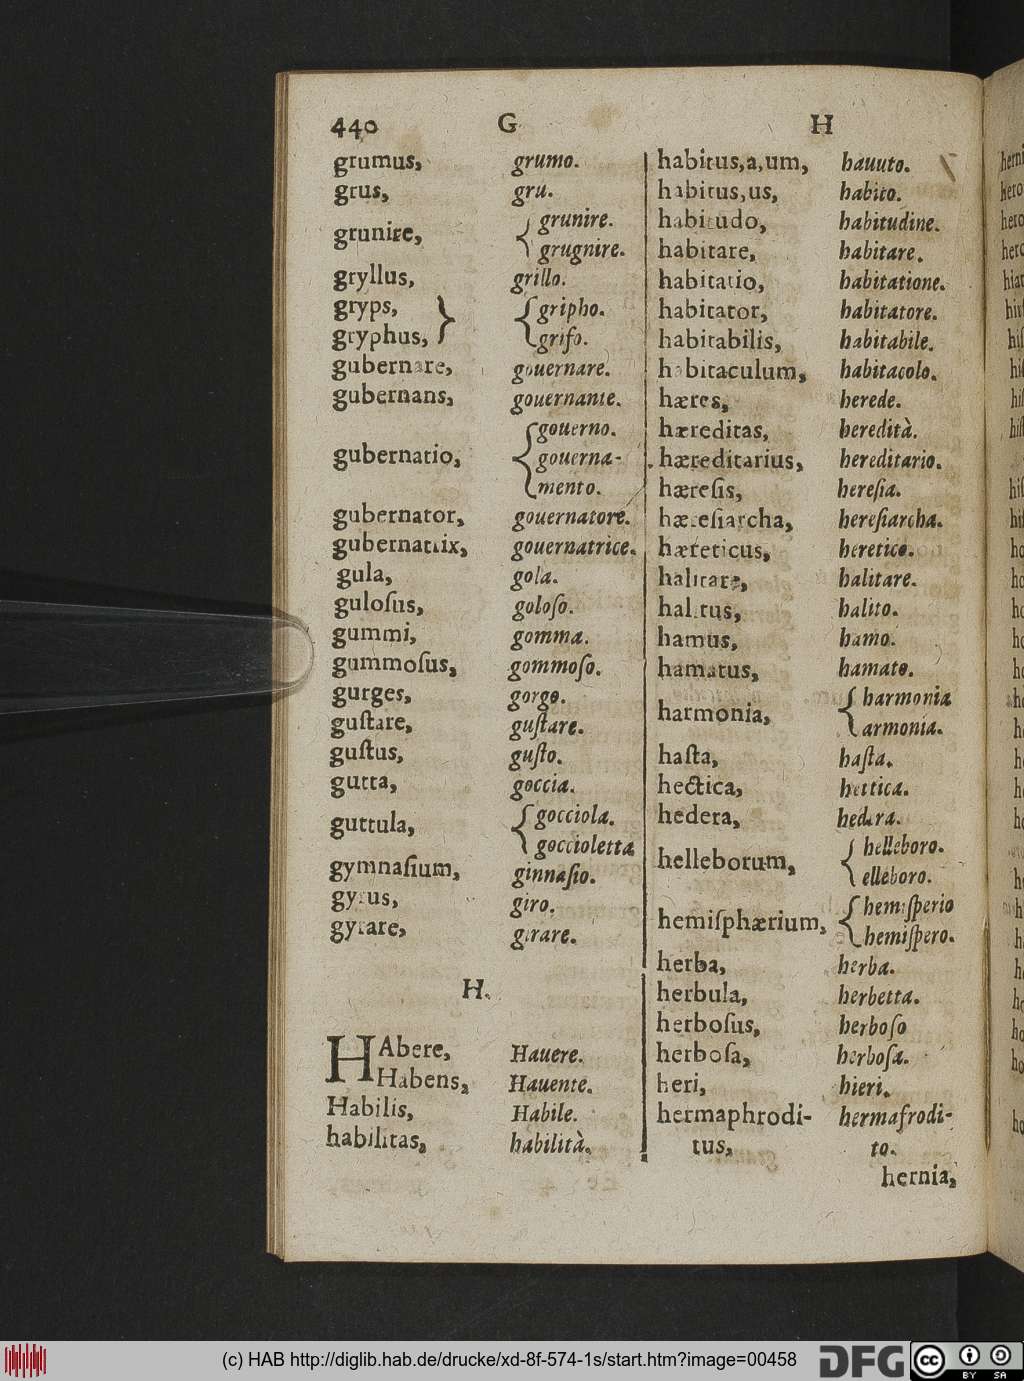 440 G H
grumus, grumo.
grus, gru.
grunire, { grunire.
grugnire.
gryllus, grillo.
gryps, } { gripho.
gryphus, grifo.
gubernare, gouernare.
gubernans, gouernante.
gubernatio, { gouerno.
gouerna-
mento.
gubernator, gouernatore.
gubernatrix, gouernatrice.
gula, gola.
guloſus, goloſo.
gummi, gomma.
gummoſus, gommoſo.
gurges, gorgo.
guſtare, guſtare.
guſtus, guſto.
gutta, goccia.
guttula, { gocciola.
goccioletta
gymnaſium, ginnaſio.
gyrus, giro.
gyrare, girare.
H.
HAbere, Hauere.
Habens, Hauente.
Habilis, Habile.
habilitas, habilità.
habitus,a,um, hauuto.
habitus,us, habito.
habitudo, habitudine.
habitare, habitare.
habitatio, habitatione.
habitator, habitatore.
habitabilis, habitabile.
habitaculum, habitacolo.
hæres, herede.
hæreditas, heredità.
hæreditarius, hereditario.
hæreſis, hereſia.
hæreſiarcha, hereſiarcha.
hæreticus, heretico.
halitare, halitare.
halitus, halito.
hamus, hamo.
hamatus, hamato.
harmonia, { harmonia
armonia.
haſta, haſta.
hectica, hettica.
hedera, hedera.
helleborum, { helleboro.
elleboro.
hemiſphærium, { hemiſperio
hemiſpero.
herba, herba.
herbula, herbetta.
herboſus, herboſo
herboſa, herboſa.
heri, hieri.
hermaphrodi- hermafrodi-
tus, to.
hernia,
(c) HAB http://diglib.hab.de/drucke/xd-8f-574-1s/start.htm?image=00458
DFG
cc BY SA